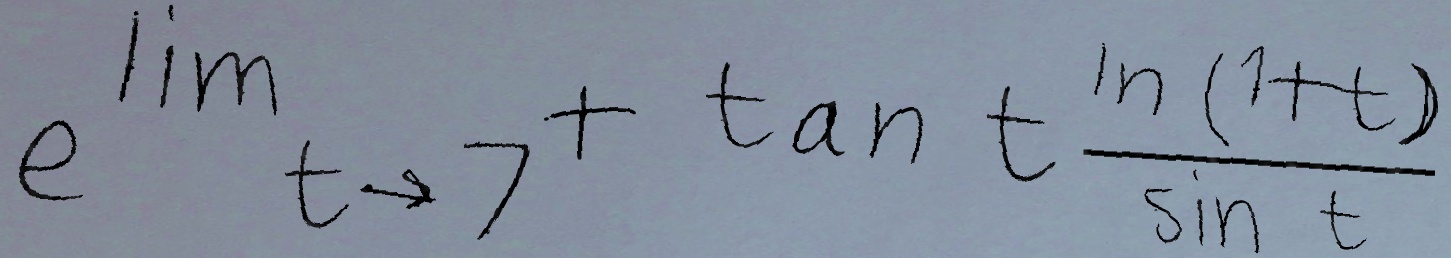 e^{lim_{t→7^+} tan t \frac{ln(1+t)}{sin t}}